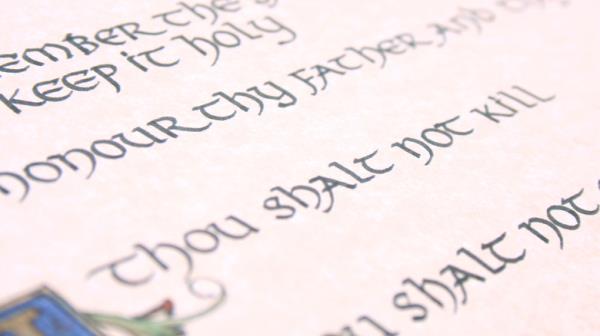 EMBER the
KEEP it holy
honour thy FATHER AND
Thou shalt not kill
shalt not